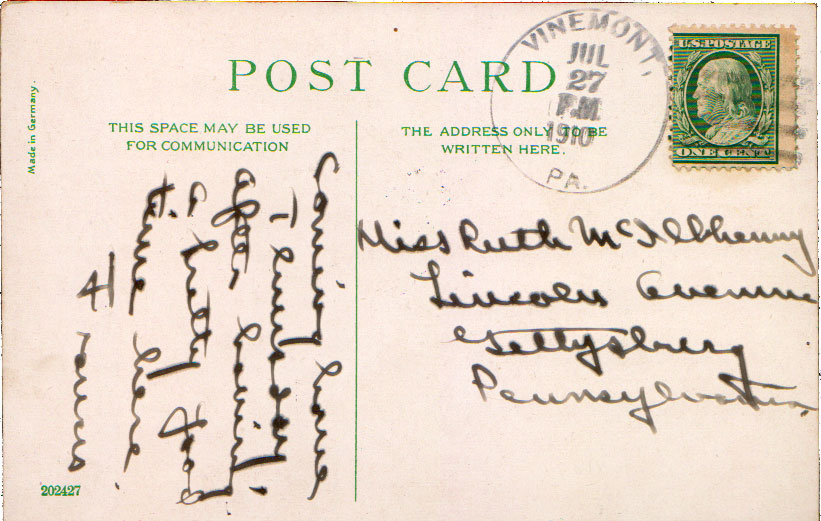 Made in Germany.
POST CARD
THIS SPACE MAY BE USED
FOR COMMUNICATION
THE ADDRESS ONLY TO BE
WRITTEN HERE.
VINEMONT,
JUL
27
P.M.
1910
PA.
U.S. POSTAGE
ONE CENT
Coming home
Thursday
after havin'
a pretty good
time here.
Miss Ruth McIlhenny
Lincoln Avenue
Gettysburg
Pennsylvania.
202427